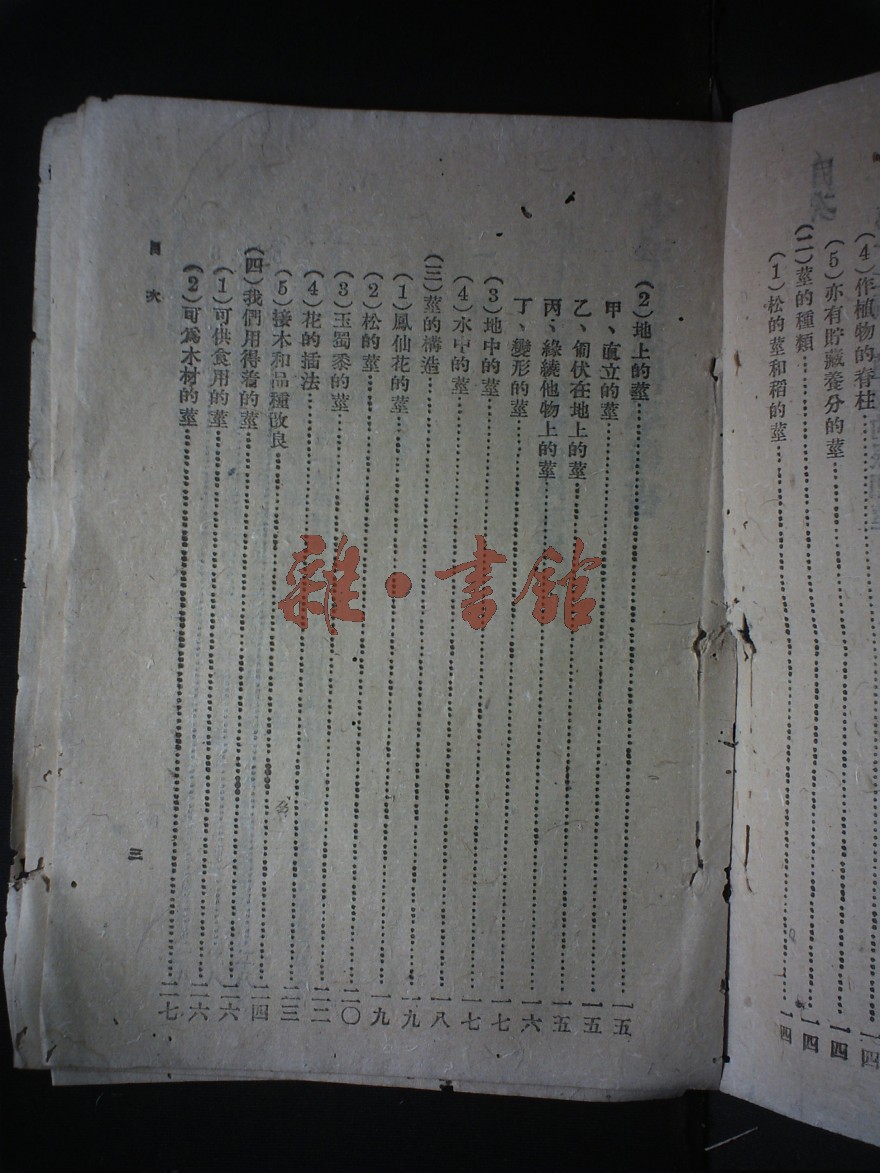 (4)作植物的脊柱……一四
(5)亦有貯藏養分的莖……一四
(二)莖的種類……一四
(1)松的莖和稻的莖……一四
(2)地上的莖……一五
甲、直立的莖……一五
乙、匍伏在地上的莖……一五
丙、緣繞他物上的莖……一六
丁、變形的莖……一七
(3)地中的莖……一七
(4)水中的莖……一八
(三)莖的構造……一九
(1)鳳仙花的莖……一九
(2)松的莖……二〇
(3)玉蜀黍的莖……二二
(4)花的插法……二三
(5)接木和品種改良……二四
(四)我們用得着的莖……二六
(1)可供食用的莖……二六
(2)可爲木材的莖……二七
目次
三
雜·書館